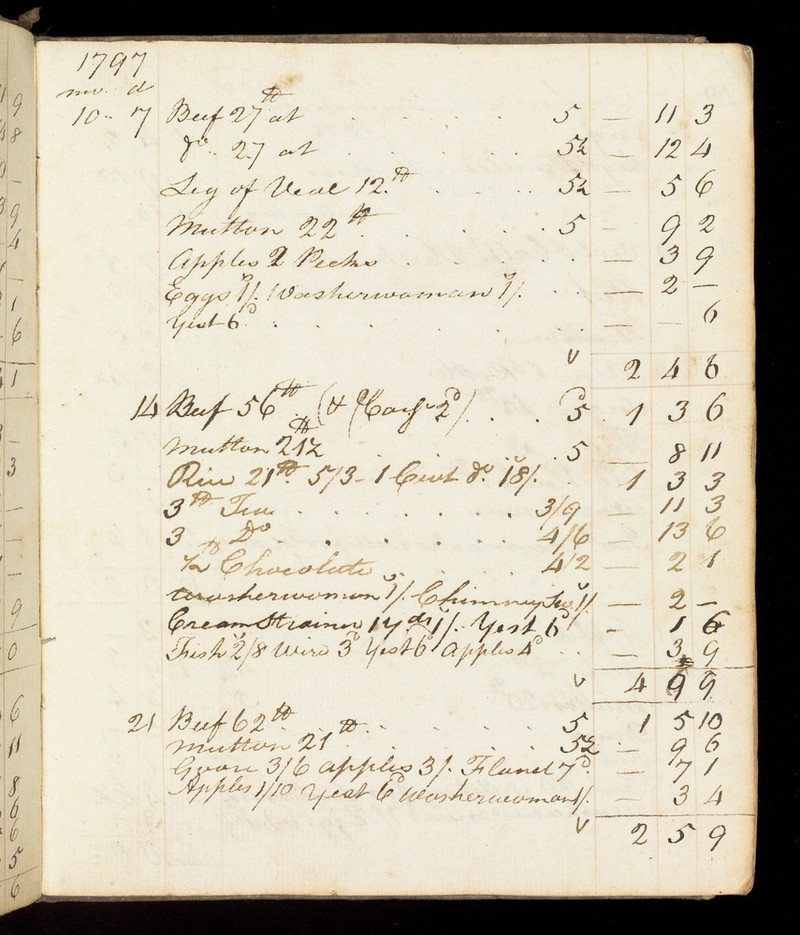 1797
mo. d
10 .. 7 Beef 27 lb at . . . . . 5 — 11 3
Do. 27 at . . . . . 5½ — 12 4
Leg of Veal 12. lb . . . . 5½ — 5 6
Mutton 22 lb . . . . . 5 — 9 2
Apples 2 Pecks . . . . . — 3 9
Eggs 1/. Washerwoman 1/. . . — 2 —
Yest 6d. . . . . . . — — 6
v 2 4 6
14 Beef 56 lb . (& 2d) . . . 5 . 1 3 6
Mutton 21½ lb . . . . . 5 — 8 11
Rice 21 lb. 5/3 - 1 Cwt Do. 18/. . 1 3 3
3 lb Tea . . . . . . . 3/9 — 11 3
3 Do . . . . . . . 4/6 — 13 6
½ lb Chocolate . . . . . 4/2 — 2 1
Washerwoman 1/. Chimney Sw. 1/. — 2 —
Cream Strainer 1 yd 1/. Yest 6d - 1 6
Fish 2/8 Wire 3d Yest 6d Apples 4d . . — 3 9
v 4 9 9
21 Beef 62 lb . . . . . . 5 1 5 10
Mutton 21 lb . . . . . . 5½ - 9 6
Goose 3/6 apples 3/. Flanel 7d. — 7 1
Apples 1/10 Yest 6d Washerwoman 1/. — 3 4
v 2 5 9
9
8
—
9
4
—
1
6
1
3
—
—
—
9
0
6
11
8
6
6
5
6